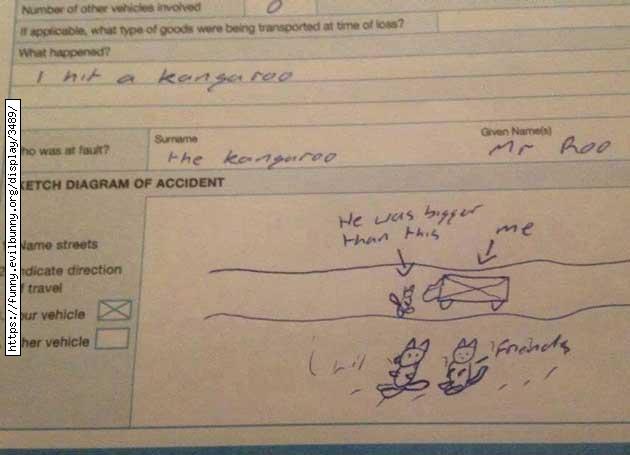 Number of other vehicles involved
0
If applicable, what type of goods were being transported at time of loss?
What happened?
I hit a kangaroo
ho was at fault?
Surname
the kangaroo
Given Name(s)
Mr Roo
KETCH DIAGRAM OF ACCIDENT
He was bigger
than this
me
Name streets
ndicate direction
f travel
our vehicle
her vehicle
friends
https://funny.evilbunny.org/display/3489/